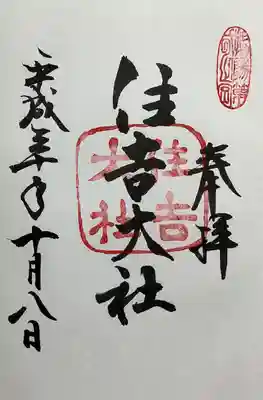 奉拝
住吉大社
住吉
大社
平成年十月八日